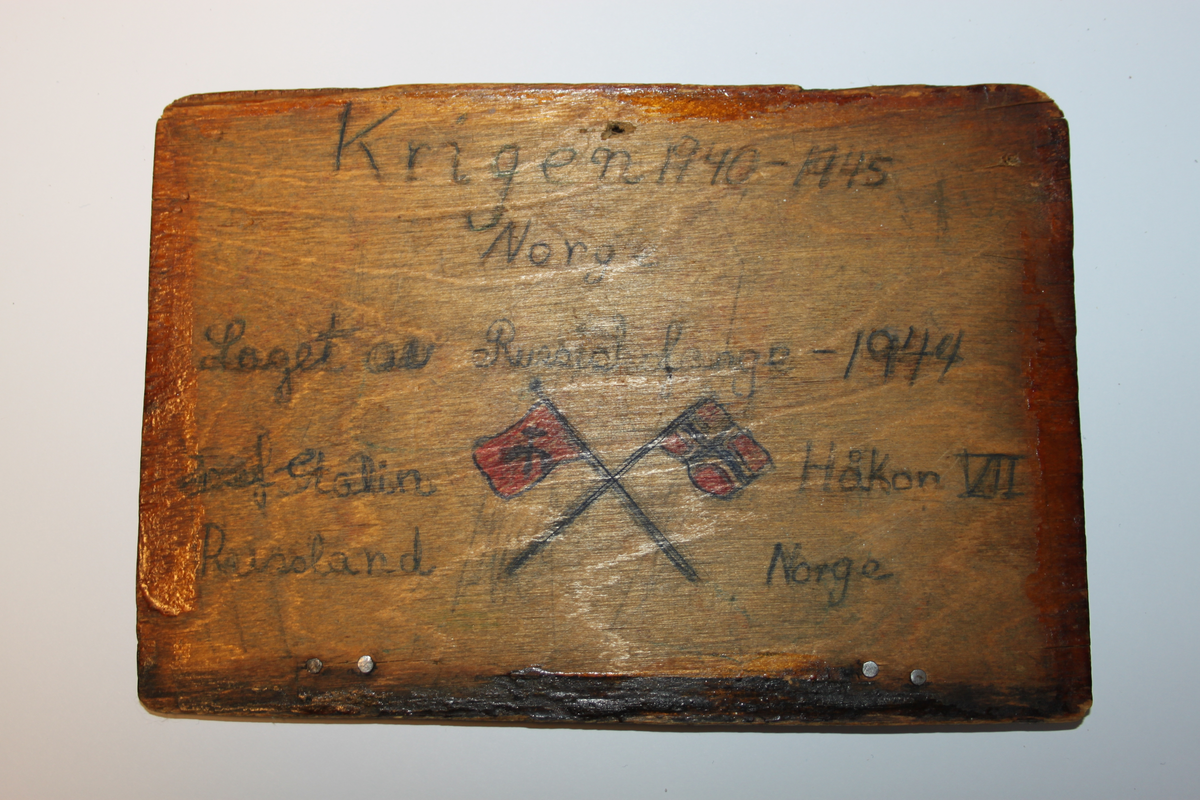 Krigen 1940-1945
Norge
Laget av Russisk fange - 1944
Stalin
Håkon VII
Russland
Norge